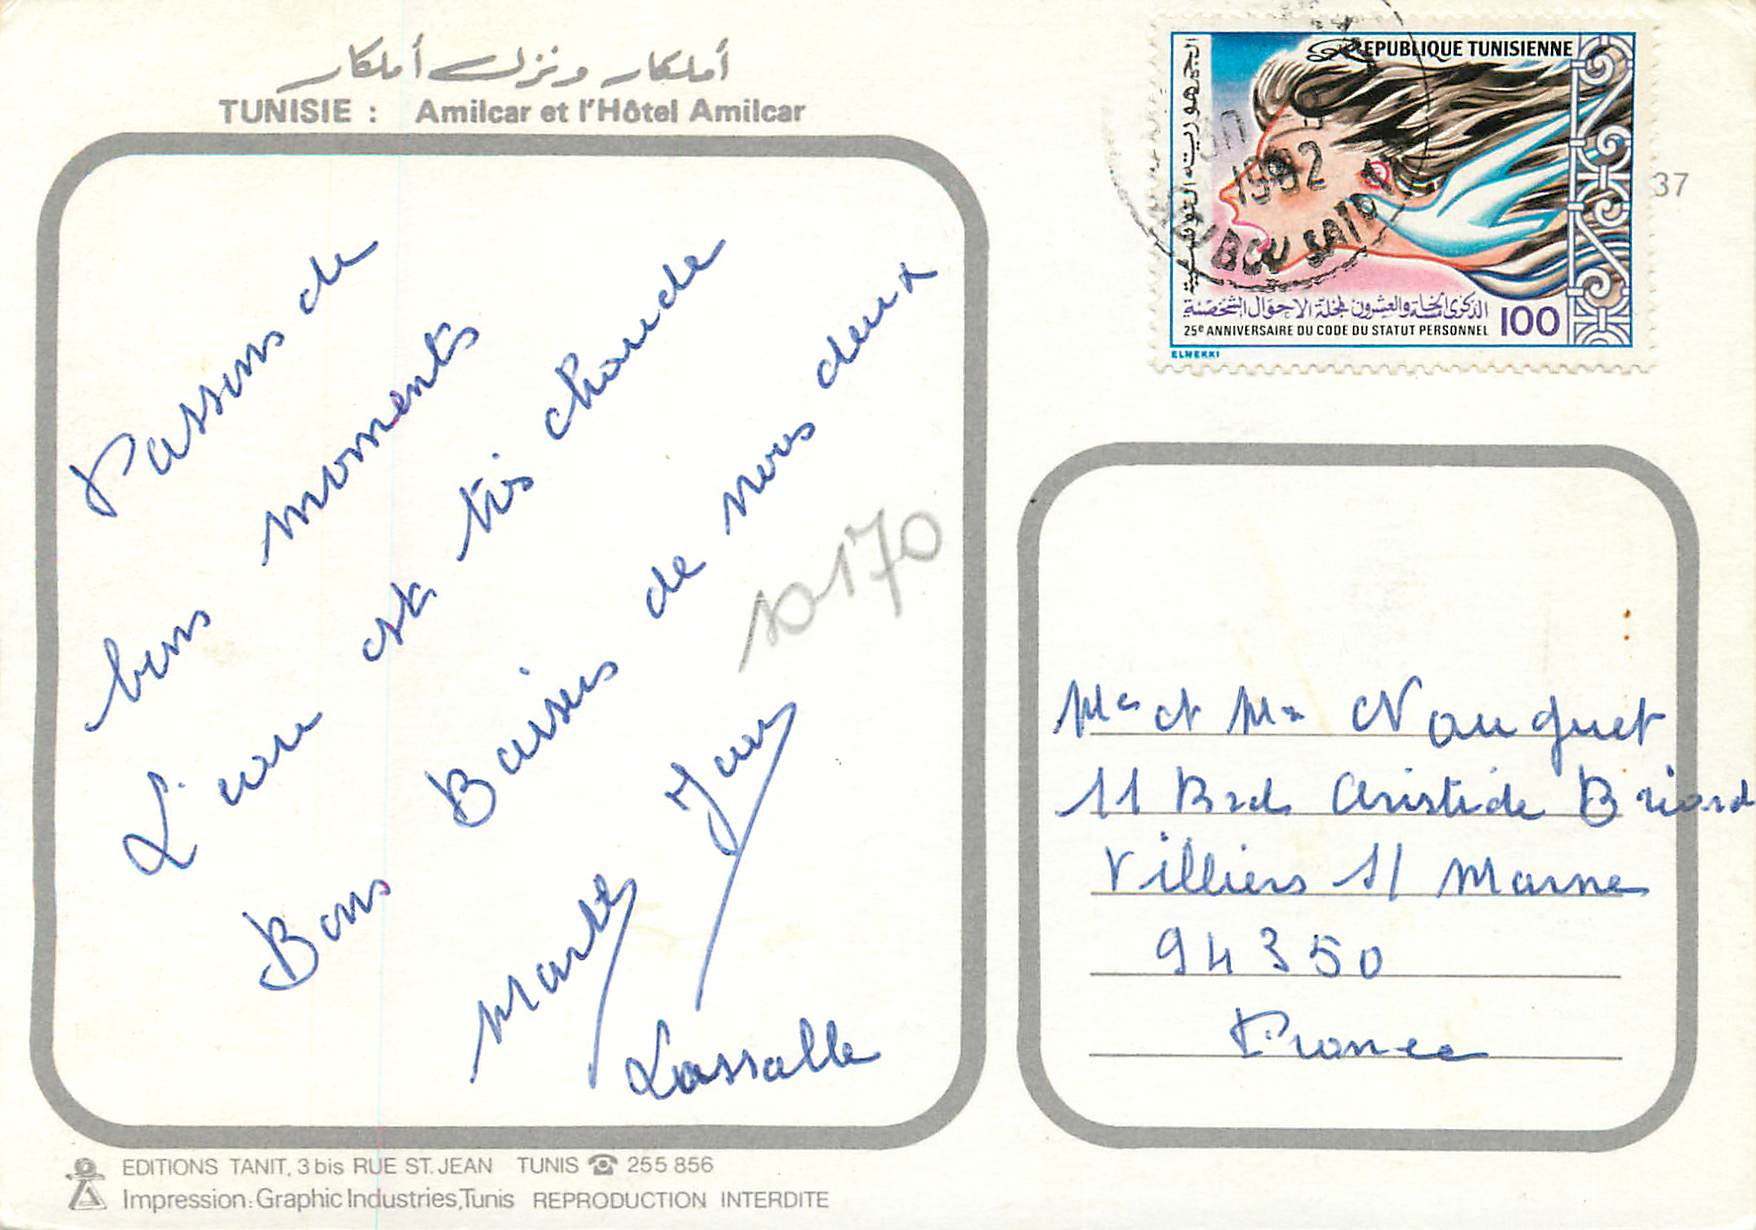 أملكار ونزل أملكار
TUNISIE : Amilcar et l'Hôtel Amilcar
Passons de
bons moments
L'eau est très chaude
Bons Baisers de nous deux
10170
Marthe
Lassalle
EDITIONS TANIT, 3 bis RUE ST. JEAN TUNIS ☎ 255 856
Impression: Graphic Industries, Tunis REPRODUCTION INTERDITE
REPUBLIQUE TUNISIENNE
الجمهورية التونسية
1982
BOU SAID
الذكرى الخامسة والعشرون لمجلة الاحوال الشخصية
25e ANNIVERSAIRE DU CODE DU STATUT PERSONNEL 100
ELMEKKI
37
Mr et Me Nauguet
11 Brd Aristide Briand
Villiers s/ Marne
94350
France